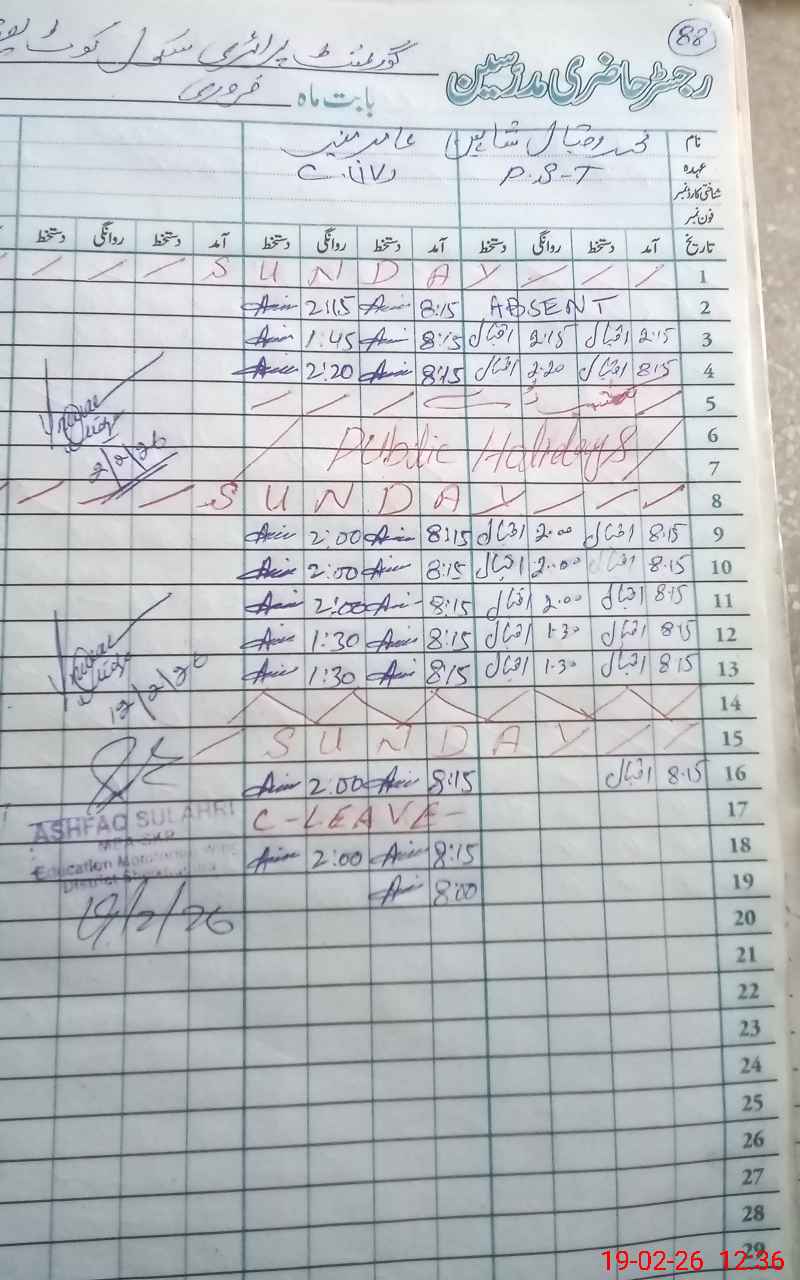 88
گورنمنٹ پرائمری سکول کوٹ
رجسٹر حاضری مدرسین
بابت ماہ فروری
نام محمد اقبال شاہین عامر منیر
عہدہ P.S-T
شناختی کارڈ نمبر
فون نمبر
تاریخ آمد دستخط روانگی دستخط آمد دستخط روانگی دستخط آمد دستخط روانگی دستخط
1 SUNDAY
2 ABSENT 8:15 2:15
3 2:15 اقبال 2:15 اقبال 8:15 1:45
4 8:15 اقبال 2:20 اقبال 8:15 2:20
5
6 Public Holidays
7
2/2/26
8 SUNDAY
9 8:15 اقبال 2:00 اقبال 8:15 2:00
10 8:15 اقبال 2:00 اقبال 8:15 2:00
11 8:15 اقبال 2:00 اقبال 8:15 2:00
12 8:15 اقبال 1:30 اقبال 8:15 1:30
13 8:15 اقبال 1:30 اقبال 8:15 1:30
12/2/26
14
15 SUNDAY
16 8:15 اقبال 8:15 2:00
17 C-LEAVE-
ASHFAQ SULAHRI
MEA-SKP
Education Monitoring
District
18 8:15 2:00
19 8:00
19/2/26
20
21
22
23
24
25
26
27
28
29
19-02-26 12:36